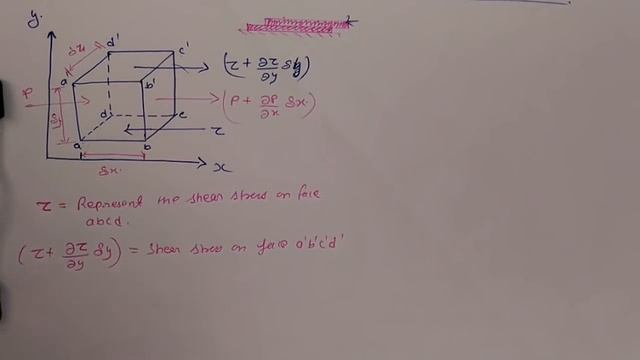 y.
d'
c'
(τ + ∂τ/∂y δy)
a'
b'
P
(P + ∂P/∂x δx)
δy
d
c
τ
a
b
δx.
x
τ = Represent the shear stress on face
abcd.
(τ + ∂τ/∂y δy) = Shear stress on face a'b'c'd'